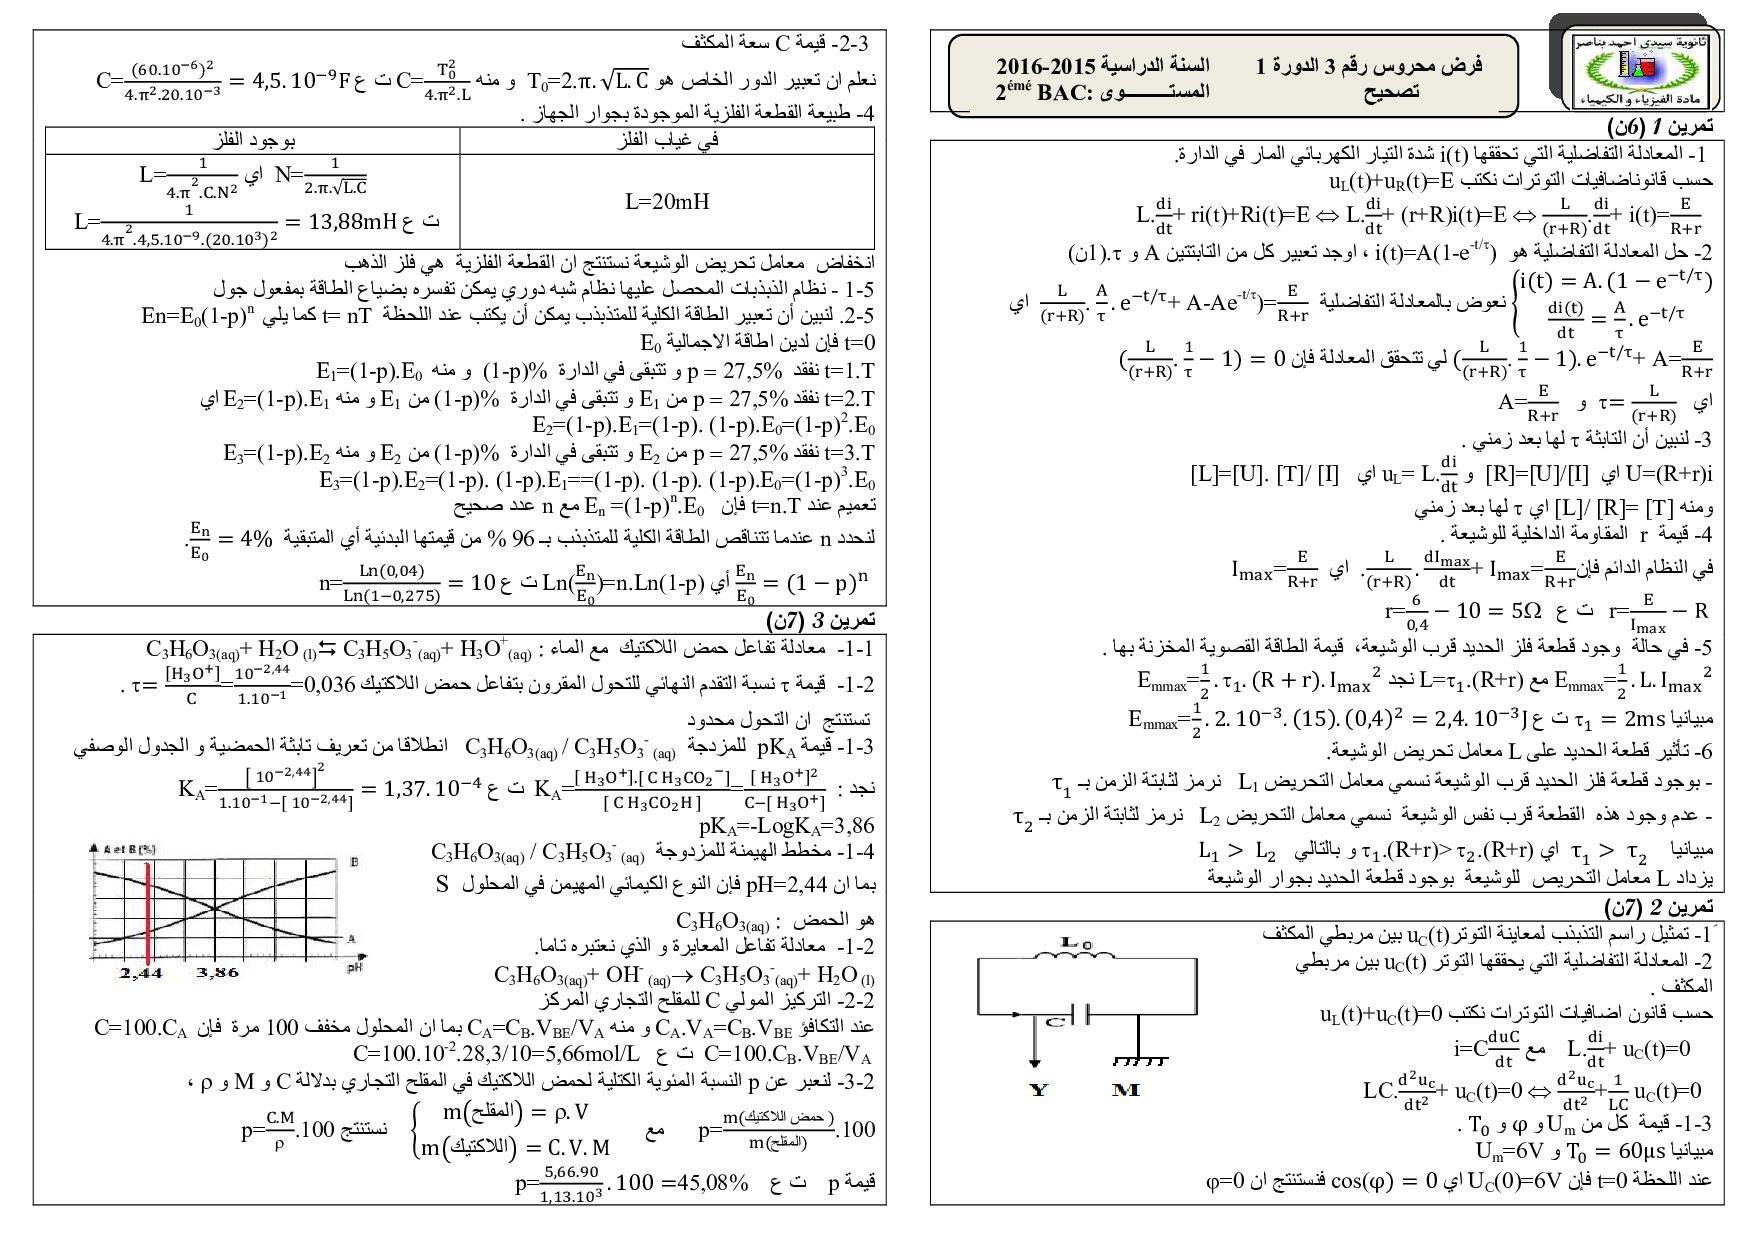 ثانوية سيدي احمد بناصر
مادة الفيزياء و الكيمياء
فرض محروس رقم 3 الدورة 1 السنة الدراسية 2015-2016
تصحيح المستــــــــوى :2émé BAC
تمرين 1 (6ن)
1- المعادلة التفاضلية التي تحققها i(t) شدة التيار الكهربائي المار في الدارة.
حسب قانوناضافيات التوترات نكتب uL(t)+uR(t)=E
L.di/dt+ ri(t)+Ri(t)=E ⇔ L.di/dt+ (r+R)i(t)=E ⇔ L/(r+R).di/dt+ i(t)=E/(R+r)
2- حل المعادلة التفاضلية هو i(t)=A(1-e^-t/τ) ، اوجد تعبير كل من الثابتتين A و τ.(1ن)
{i(t) = A. (1 − e^−t/τ)
di(t)/dt = A/τ. e^−t/τ نعوض بالمعادلة التفاضلية L/(r+R). A/τ. e^−t/τ+ A-Ae^-t/τ)=E/(R+r) اي
(L/(r+R). 1/τ − 1). e^−t/τ+ A=E/(R+r) لي تتحقق المعادلة فإن (L/(r+R). 1/τ − 1) = 0
اي τ= L/(r+R) و A=E/(R+r)
3- لنبين أن الثابثة τ لها بعد زمني .
U=(R+r)i اي [R]=[U]/[I] و uL= L.di/dt اي [L]=[U]. [T]/ [I]
ومنه [L]/ [R]= [T] اي τ لها بعد زمني
4- قيمة r المقاومة الداخلية للوشيعة .
في النظام الدائم فإن L/(r+R). dImax/dt+ Imax=E/(R+r) اي Imax=E/(R+r).
r=E/Imax − R ت ع r=6/0,4 − 10 = 5Ω
5- في حالة وجود قطعة فلز الحديد قرب الوشيعة، قيمة الطاقة القصوية المخزنة بها .
Emmax=1/2. L. Imax² مع L=τ1.(R+r) نجد Emmax=1/2. τ1. (R + r). Imax²
مبيانيا τ1 = 2ms ت ع Emmax=1/2. 2. 10−3. (15). (0,4)² = 2,4. 10−3J
6- تأثير قطعة الحديد على L معامل تحريض الوشيعة.
- بوجود قطعة فلز الحديد قرب الوشيعة نسمي معامل التحريض L1 نرمز لثابتة الزمن بـ τ1
- عدم وجود هذه القطعة قرب نفس الوشيعة نسمي معامل التحريض L2 نرمز لثابتة الزمن بـ τ2
مبيانيا τ1 > τ2 اي τ1.(R+r)> τ2.(R+r) و بالتالي L1 > L2
يزداد L معامل التحريض للوشيعة بوجود قطعة الحديد بجوار الوشيعة
تمرين 2 (7ن)
1- تمثيل راسم التذبذب لمعاينة التوتر uC(t) بين مربطي المكثف
2- المعادلة التفاضلية التي يحققها التوتر uC(t) بين مربطي
المكثف .
حسب قانون اضافيات التوترات نكتب uL(t)+uC(t)=0
L.di/dt+ uC(t)=0 مع i=C duC/dt
LC.d²uc/dt²+ uC(t)=0 ⇔ d²uc/dt²+1/LC uC(t)=0
3-1- قيمة كل من Um و φ و T0 .
مبيانيا T0 = 60µs و Um=6V
عند اللحظة t=0 فإن UC(0)=6V اي cos(φ) = 0 فنستنتج ان φ=0
L0
C
Y M
3-2- قيمة C سعة المكثف
نعلم ان تعبير الدور الخاص هو T0=2.π.√L.C و منه C=T0²/4.π².L ت ع C=(60.10−6)²/4.π².20.10−3 = 4,5. 10−9F
4- طبيعة القطعة الفلزية الموجودة بجوار الجهاز .
في غياب الفلز بوجود الفلز
L=20mH
N=1/2.π.√L.C اي L=1/4.π².C.N²
ت ع L=1/4.π².4,5.10−9.(20.10³)² = 13,88mH
انخفاض معامل تحريض الوشيعة نستنتج ان القطعة الفلزية هي فلز الذهب
5-1 - نظام الذبذبات المحصل عليها نظام شبه دوري يمكن تفسره بضياع الطاقة بمفعول جول
5-2. لنبين أن تعبير الطاقة الكلية للمتذبذب يمكن أن يكتب عند اللحظة t= nT كما يلي En=E0(1-p)^n
t=0 فإن لدين اطاقة الاجمالية E0
t=1.T نفقد p = 27,5% و تتبقى في الدارة (1-p)% و منه E1=(1-p).E0
t=2.T نفقد p = 27,5% من E1 و تتبقى في الدارة (1-p)% من E1 و منه E2=(1-p).E1 اي
E2=(1-p).E1=(1-p). (1-p).E0=(1-p)².E0
t=3.T نفقد p = 27,5% من E2 و تتبقى في الدارة (1-p)% من E2 و منه E3=(1-p).E2
E3=(1-p).E2=(1-p). (1-p).E1==(1-p). (1-p). (1-p).E0=(1-p)³.E0
تعميم عند t=n.T فإن En =(1-p)^n.E0 مع n عدد صحيح
لنحدد n عندما تتناقص الطاقة الكلية للمتذبذب بـ 96 % من قيمتها البدئية أي المتبقية En/E0 = 4%.
En/E0 = (1 − p)^n أي Ln(En/E0)=n.Ln(1-p) ت ع n=Ln(0,04)/Ln(1−0,275) = 10
تمرين 3 (7ن)
1-1- معادلة تفاعل حمض اللاكتيك مع الماء : C3H6O3(aq)+ H2O (l)⇆ C3H5O3-(aq)+ H3O+(aq)
1-2- قيمة τ نسبة التقدم النهائي للتحول المقرون بتفاعل حمض اللاكتيك τ= [H3O+]/C=10−2,44/1.10−1=0,036 .
تستنتج ان التحول محدود
1-3- قيمة pKA للمزدجة C3H6O3(aq) / C3H5O3- (aq) انطلاقا من تعريف تابثة الحمضية و الجدول الوصفي
نجد : KA=[ H3O+].[ C H3CO2−]/[ C H3CO2H ]=[ H3O+]²/C−[ H3O+] ت ع KA=[ 10−2,44]²/1.10−1−[ 10−2,44] = 1,37. 10−4
pKA=-LogKA=3,86
1-4- مخطط الهيمنة للمزدوجة C3H6O3(aq) / C3H5O3- (aq)
بما ان pH=2,44 فإن النوع الكيمائي المهيمن في المحلول S
هو الحمض : C3H6O3(aq)
A et B (%)
B
A
pH
2,44 3,86
2-1- معادلة تفاعل المعايرة و الذي نعتبره تاما.
C3H6O3(aq)+ OH- (aq)→ C3H5O3-(aq)+ H2O (l)
2-2- التركيز المولي C للمقلح التجاري المركز
عند التكافؤ CA.VA=CB.VBE و منه CA=CB.VBE/VA بما ان المحلول مخفف 100 مرة فإن C=100.CA
C=100.CB.VBE/VA ت ع C=100.10-2.28,3/10=5,66mol/L
2-3- لنعبر عن p النسبة المئوية الكتلية لحمض اللاكتيك في المقلح التجاري بدلالة C و M و ρ ،
p=m(حمض اللاكتيك)/m(المقلح).100 مع {m(المقلح) = ρ. V
m(اللاكتيك) = C. V. M نستنتج p=C.M/ρ.100
قيمة p ت ع p=5,66.90/1,13.10³. 100 =45,08%